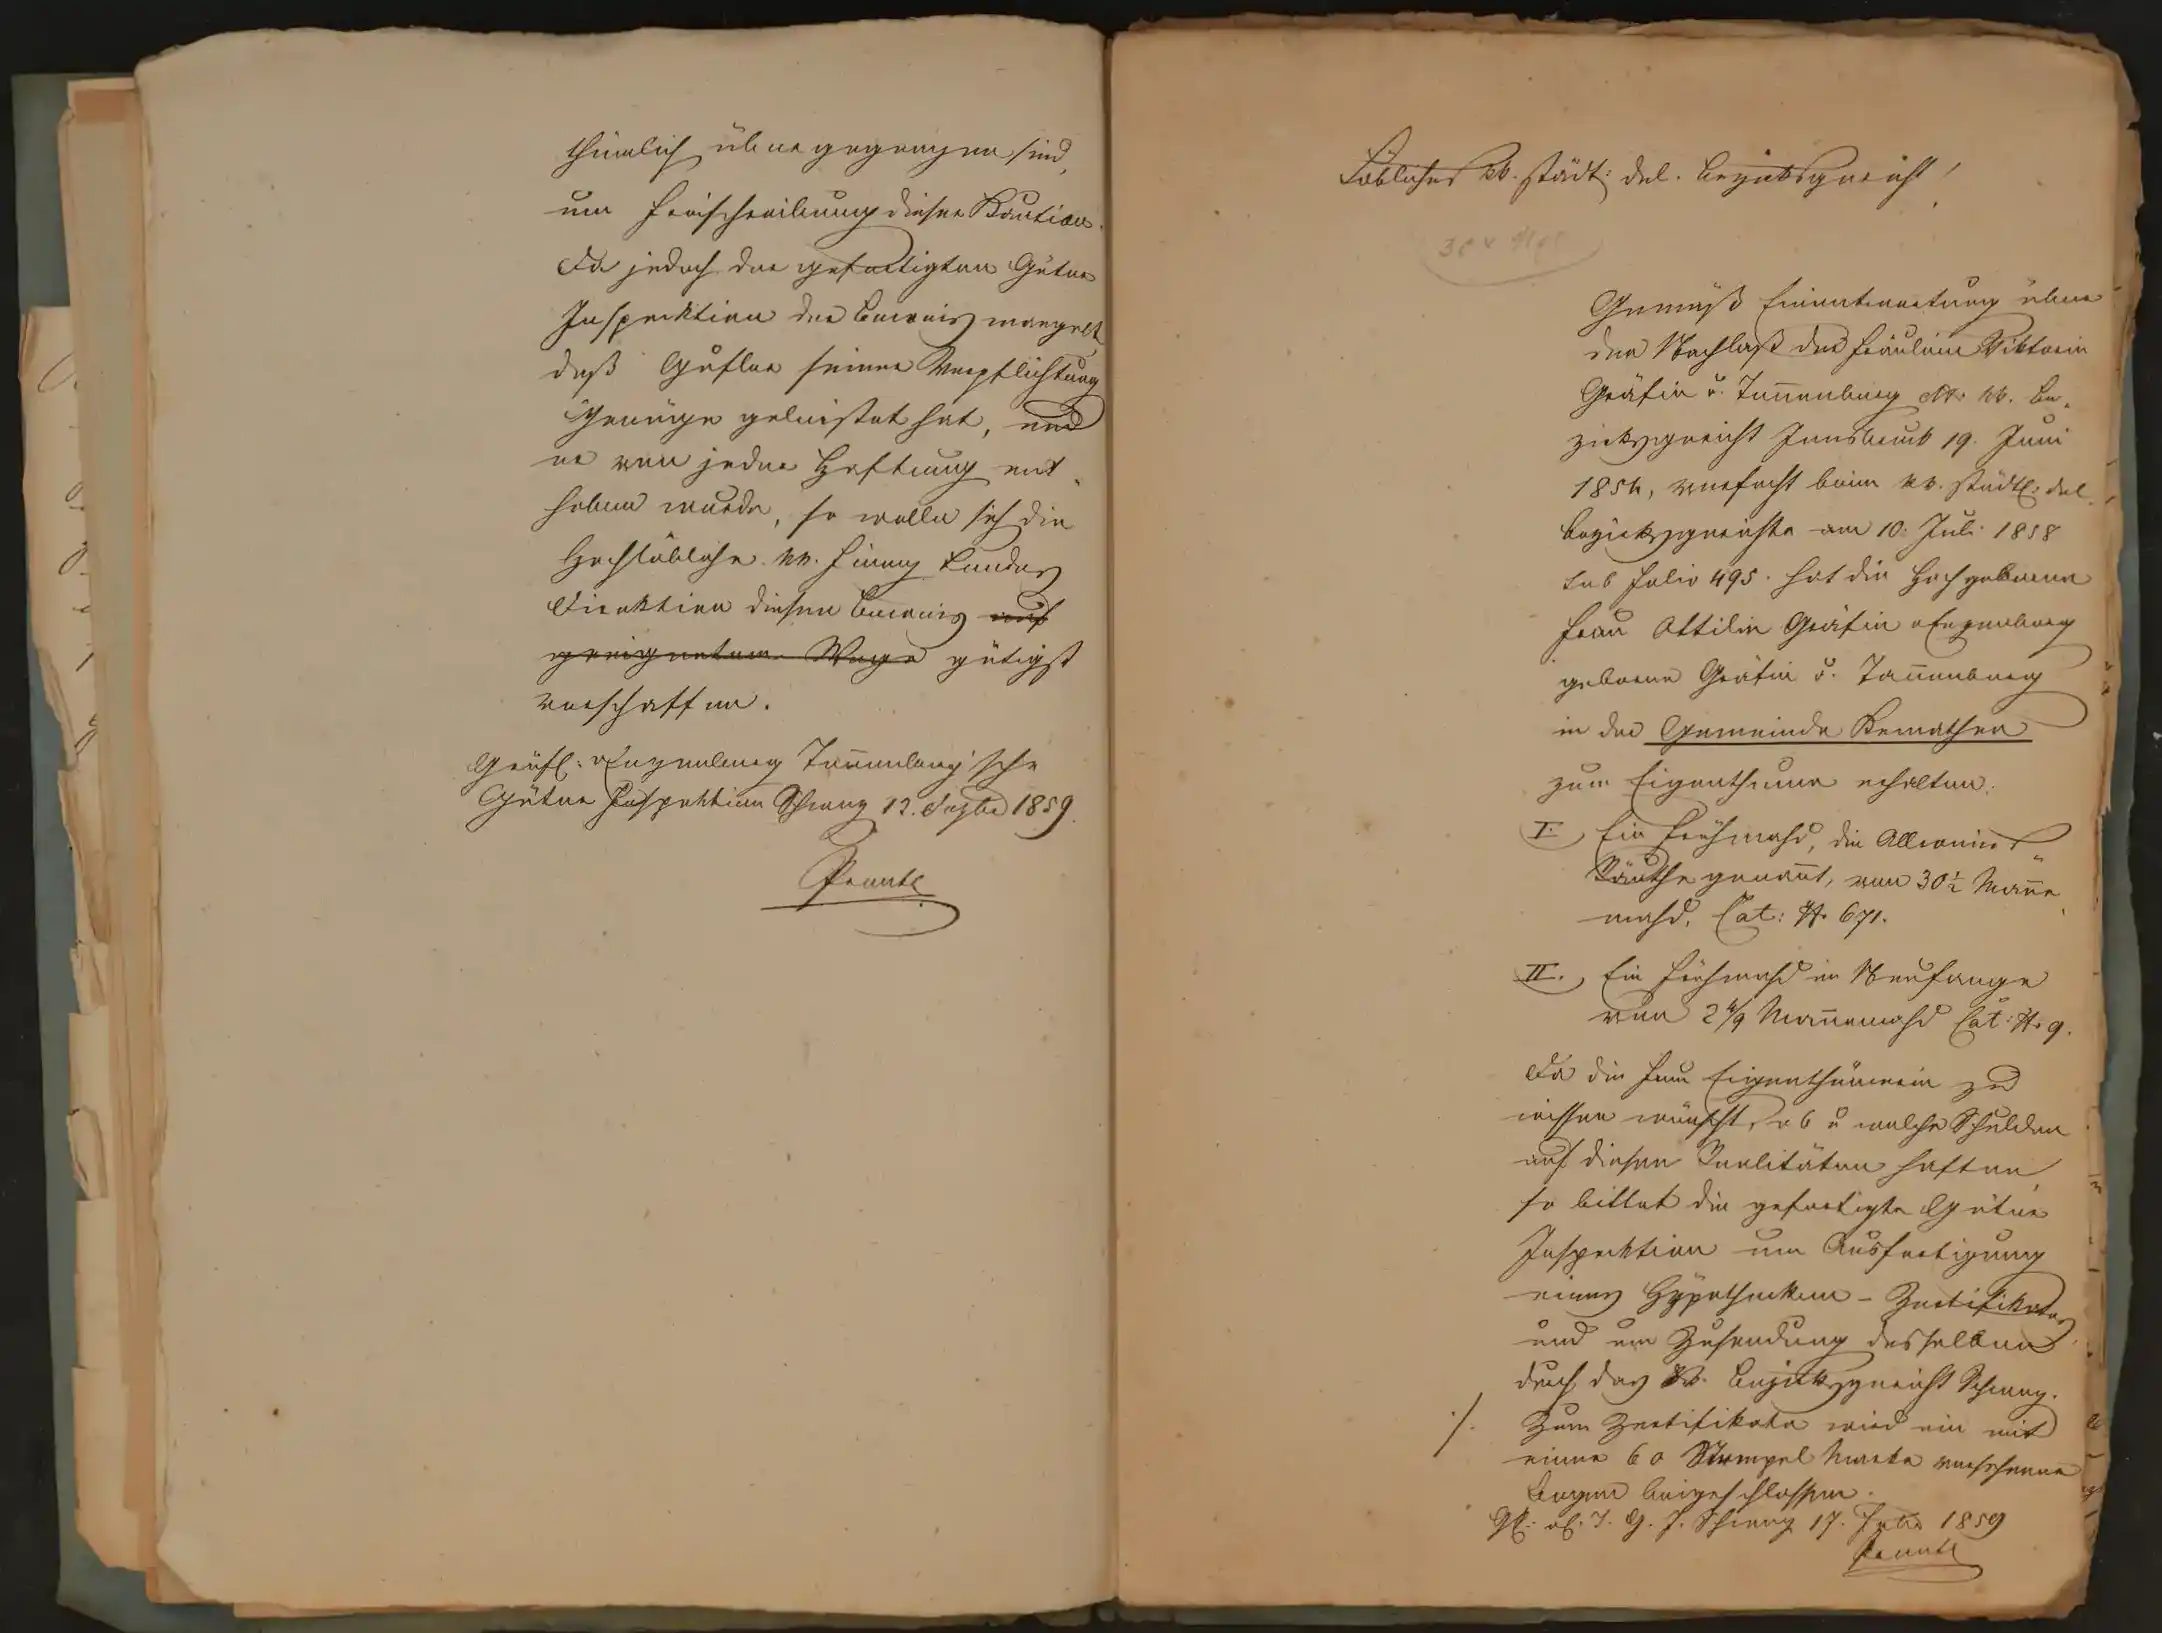 thümlich übergegangen sind,
um Freischreibung dieser Kaution.
Da jedoch der gefertigten Güter
Inspektion der Beweis mangelt
daß Gufler seiner Verpflichtung
Genüge geleistet hat, und
er von jeder Haftung ent-
hoben wurde, so wolle sich die
Hochlöbliche kk. Finanz Landes
Direktion diesen Beweis auf
geeignetem Wege gütigst
verschaffen.
Gräfl: Enzenberg Tannenberg'sche
Güter Inspektion Schwaz 12. 1859.
Löbliches kk. städt: del. Bezirksgericht!
Gemäß Einantwortung über
den Nachlaß des Fräulein Viktoria
Gräfin v. Tannenberg kk. Be-
zirksgericht Innsbruck 19. Juni
verfacht beim kk. städtl: del.
Bezirksgerichte am 10. Juli 1858
sub Folio 495. hat die Hochgeborne
Frau Ottilie Gräfin Enzenberg
geborne Gräfin v. Tannenberg
in der Gemeinde Kemathen
zum Eigenthume erhalten.
I. Ein Frühmahd, die
genannt, von 30½ Manns-
mahd, Cat: N. 671.
II. Ein Frühmahd in Neufange
von 2 4/9 Mannsmahd Cat: N. 9.
Da die Frau Eigenthümerin zu
wissen wünscht, ob u welche Schulden
auf diesen Realitäten haften,
so bittet die gefertigte Güter
Inspektion um Ausfertigung
eines Hypotheken-Zertifikates
und um Zusendung desselben
durch das kk. Bezirksgericht Schwaz.
./. Zum Zertifikate wird ein mit
einer 60 Stempel Marke versehener
Bogen beigeschlossen.
Gfl: E. T. G. I. Schwaz 17. 1859